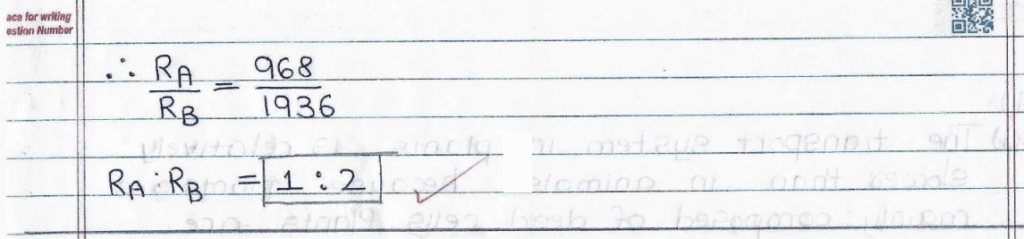 ace for writing
estion Number
∴ R_A/R_B = 968/1936
R_A : R_B = 1 : 2